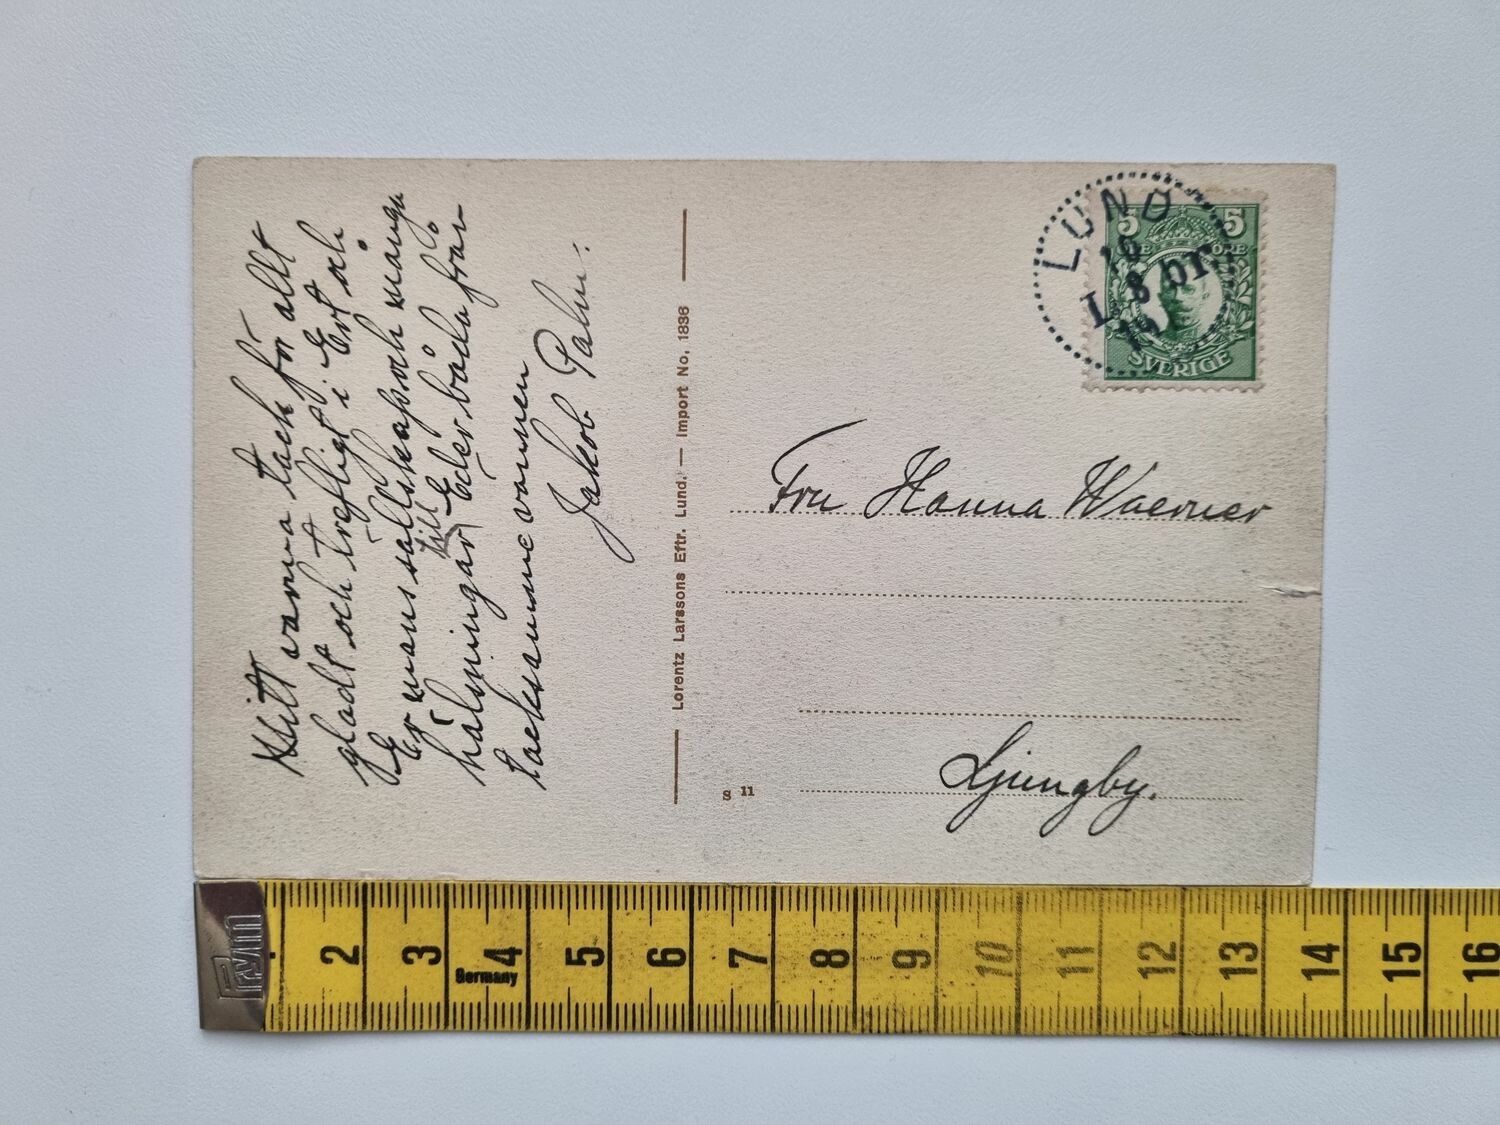 Mitt varma tack för allt
gladt och trefligt i Ert och
Er mans sällskap och många
till
hälsningar Eder båda från
tacksamme vännen
Jakob Palm.
Lorentz Larssons Eftr. Lund. — Import No. 1836
S 11
LUND
10
8
LBR
5 5
ÖRE
SVERIGE
Fru Hanna Waerner
Ljungby.
Prym
2 3 4 5 6 7 8 9 10 11 12 13 14 15 16
Germany